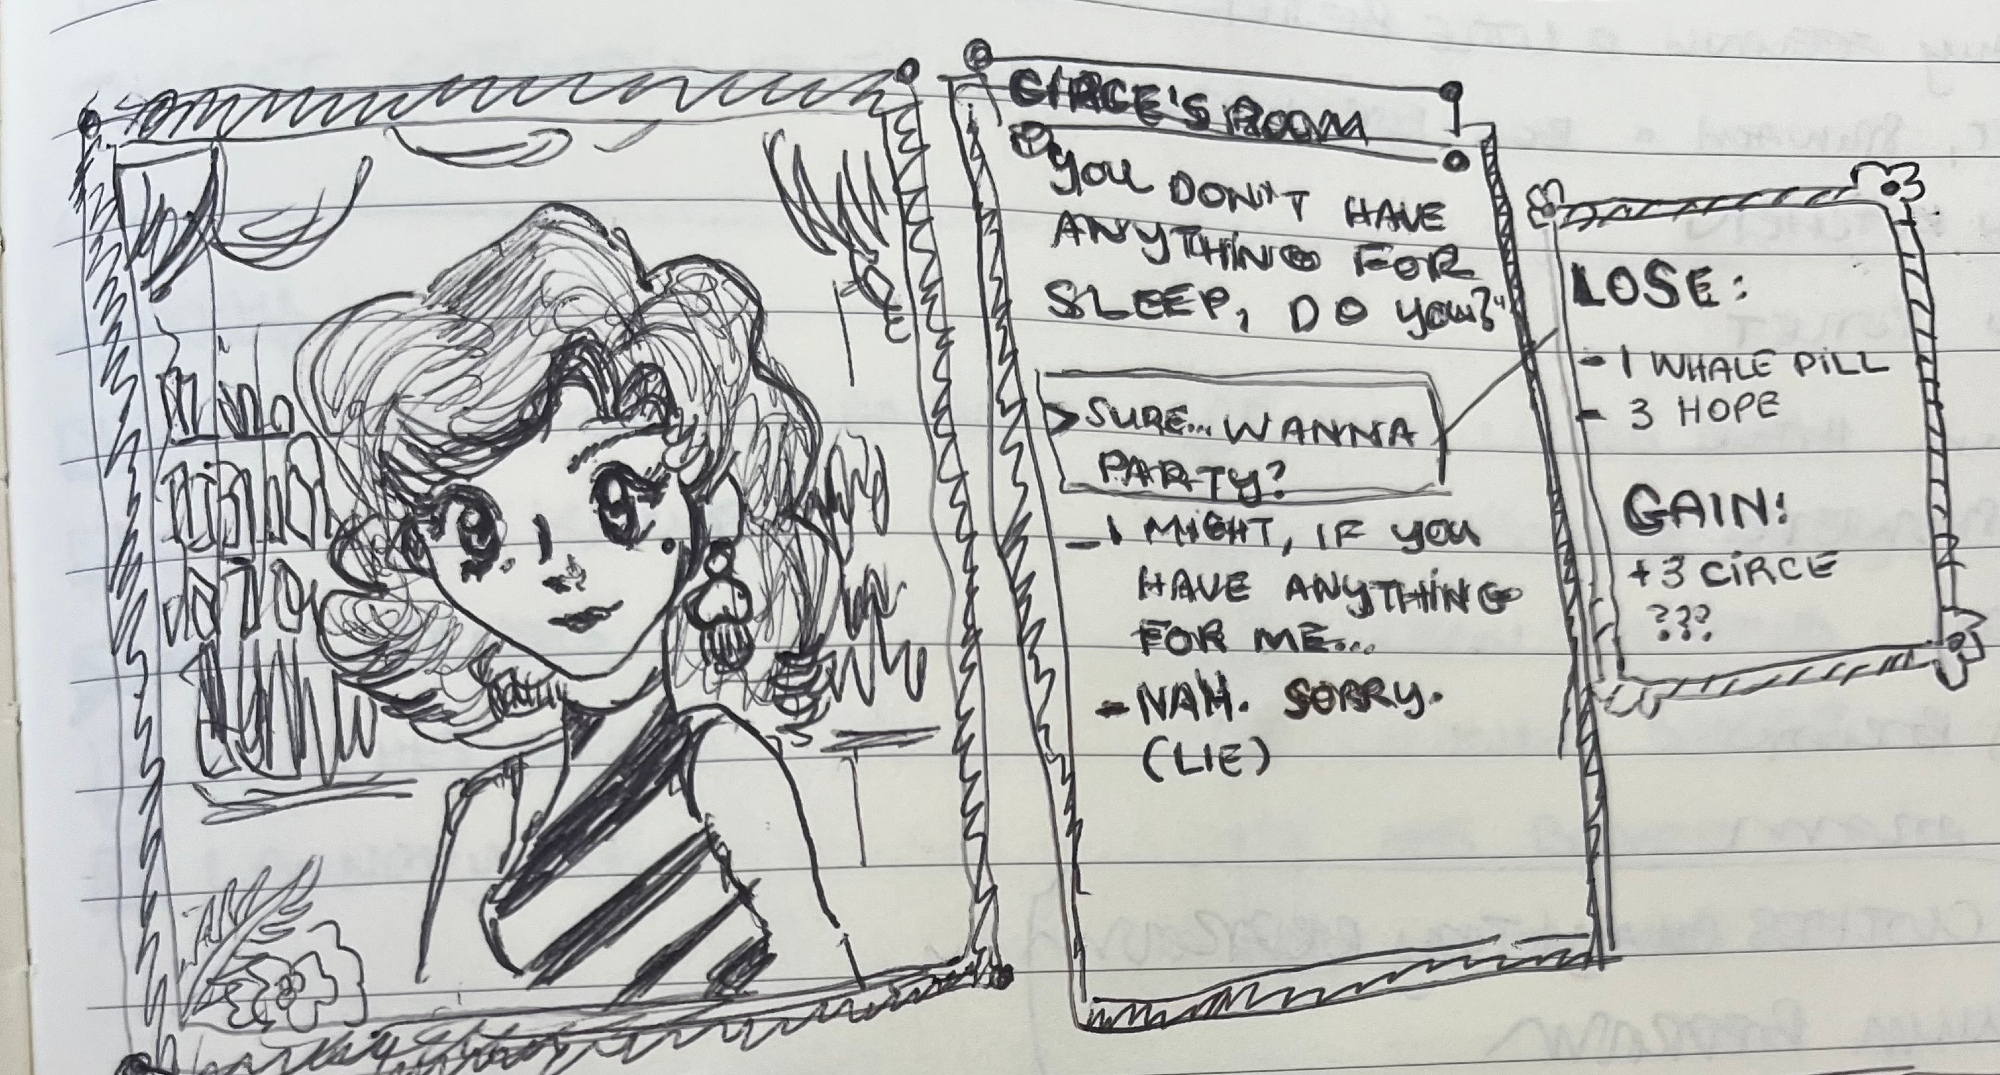 CIRCE'S ROOM
"YOU DON'T HAVE
ANYTHING FOR
SLEEP, DO YOU?"
> SURE... WANNA
PARTY?
- I MIGHT, IF YOU
HAVE ANYTHING
FOR ME...
- NAH. SORRY.
(LIE)
LOSE:
- 1 WHALE PILL
- 3 HOPE
GAIN:
+3 CIRCE
???